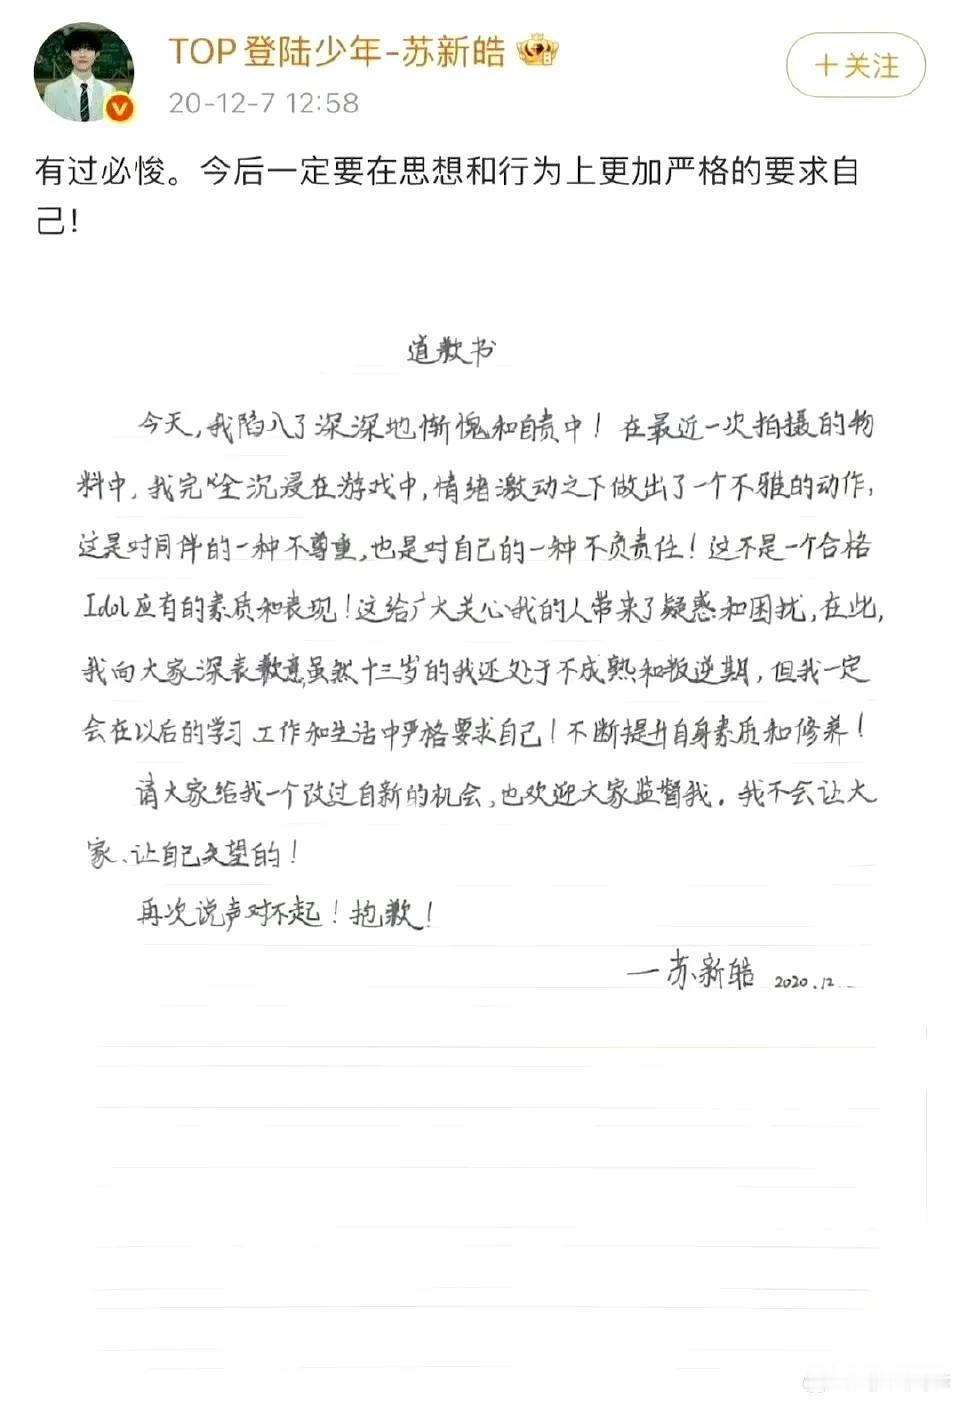 TOP登陆少年-苏新皓
20-12-7 12:58
+关注
有过必悛。今后一定要在思想和行为上更加严格的要求自
己!
道歉书
今天,我陷入了深深地惭愧和自责中!在最近一次拍摄的物
料中,我完全沉浸在游戏中,情绪激动之下做出了一个不雅的动作,
这是对同伴的一种不尊重,也是对自己的一种不负责任!这不是一个合格
Idol应有的素质和表现!这给广大关心我的人带来了疑惑和困扰,在此,
我向大家深表歉意,虽然十三岁的我还处于不成熟和叛逆期,但我一定
会在以后的学习工作和生活中严格要求自己!不断提升自身素质和修养!
请大家给我一个改过自新的机会,也欢迎大家监督我。我不会让大
家、让自己失望的!
再次说声对不起!抱歉!
—苏新皓 2020.12